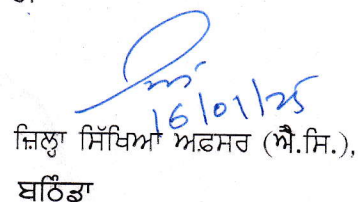 16/01/25
ਜ਼ਿਲ੍ਹਾ ਸਿੱਖਿਆ ਅਫ਼ਸਰ (ਐ.ਸਿ.),
ਬਠਿੰਡਾ